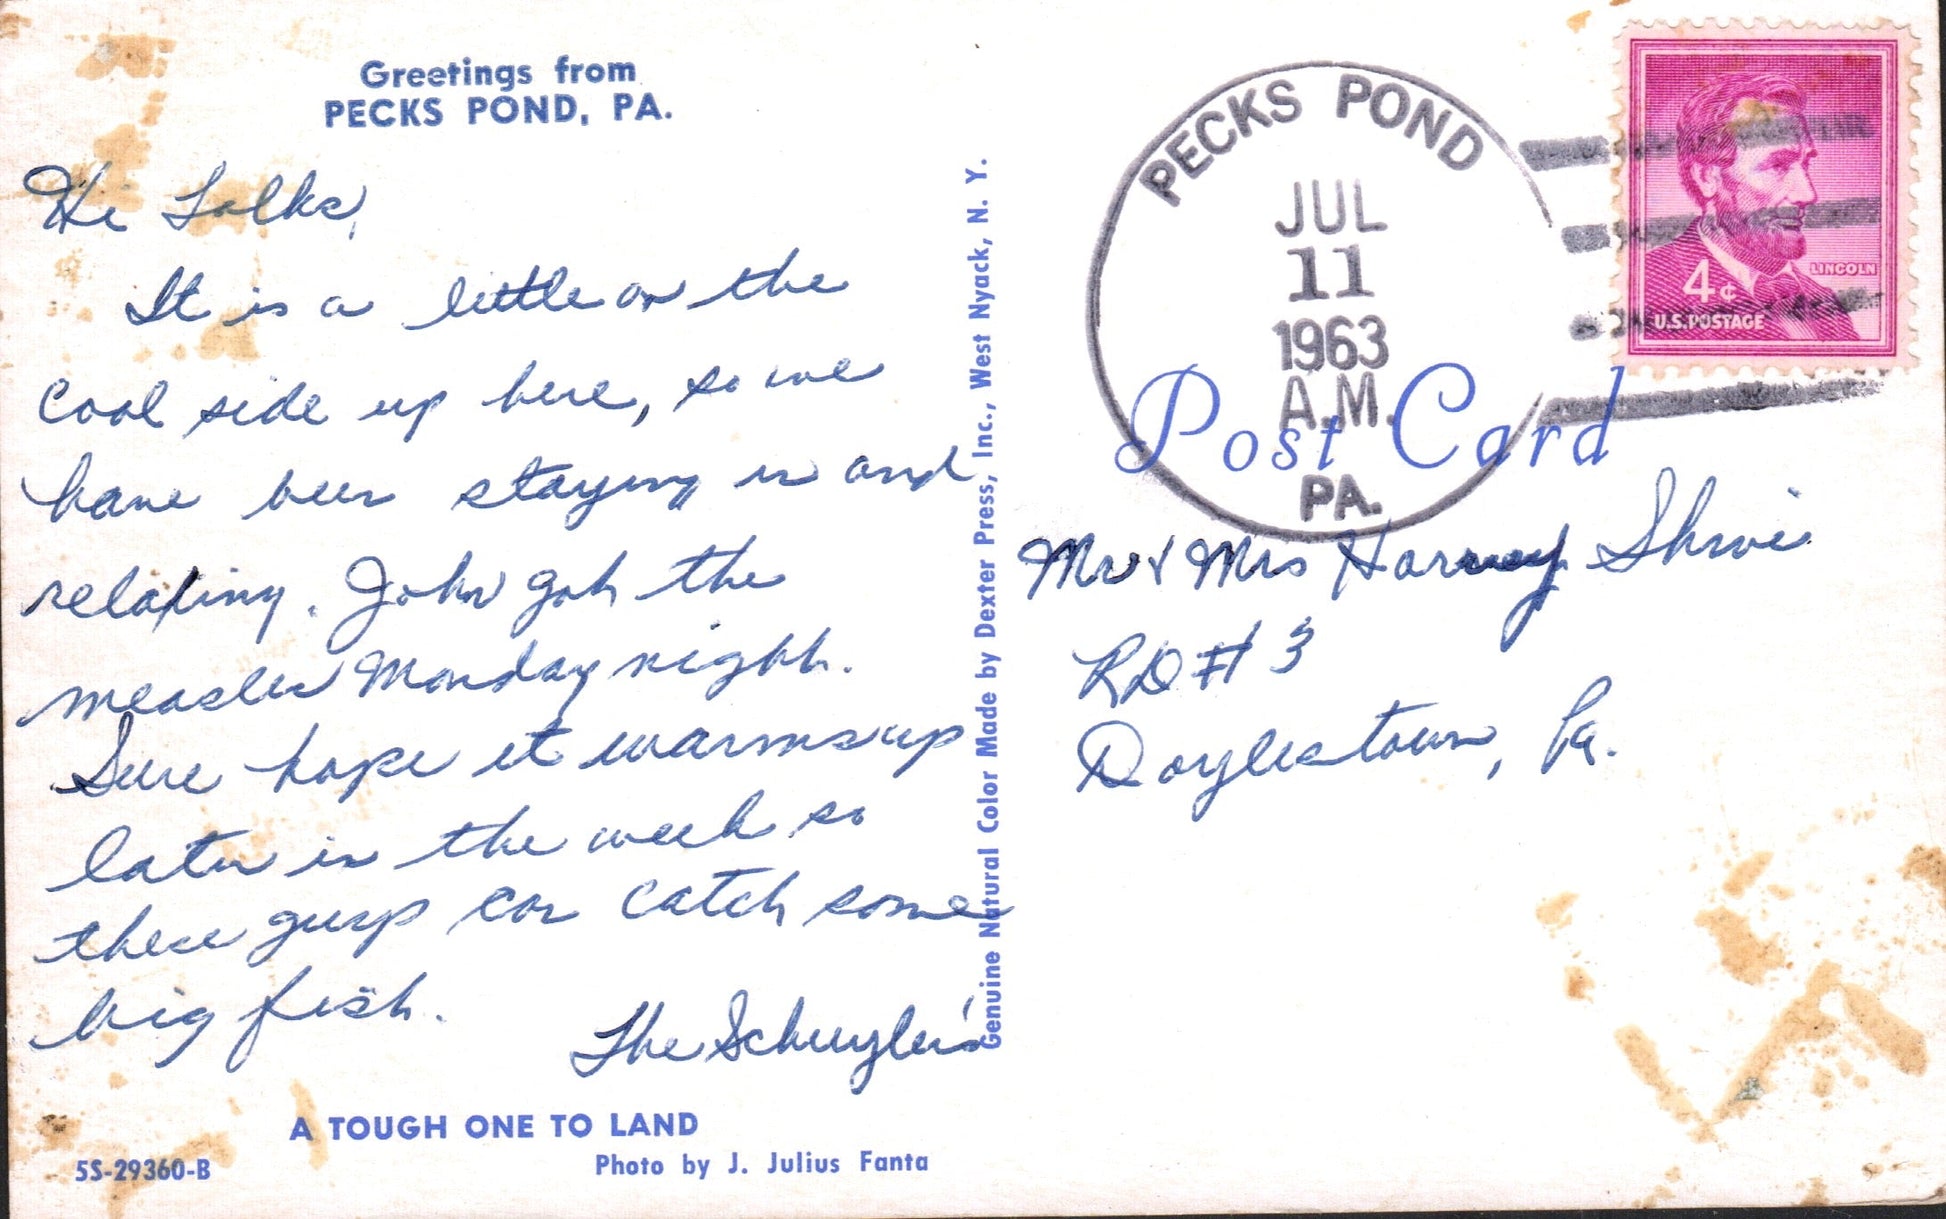 Greetings from
PECKS POND, PA.
Hi Folks,
It is a little on the
cool side up here, so we
have been staying in and
relaxing. John got the
measles Monday night.
Sure hope it warms up
later in the week so
these guys can catch some
big fish.
The Schuyler's
A TOUGH ONE TO LAND
5S-29360-B
Photo by J. Julius Fanta
Genuine Natural Color Made by Dexter Press, Inc., West Nyack, N. Y.
PECKS POND
JUL
11
1963
A.M.
PA.
LINCOLN
4¢
U.S. POSTAGE
Post Card
Mr & Mrs Harvey
RD # 3
Doylestown, Pa.